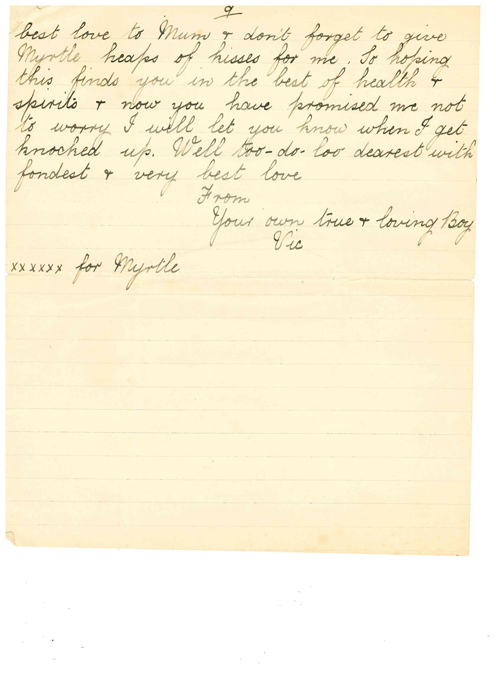 9
best love to Mum & don't forget to give
Myrtle heaps of kisses for me. So hoping
this finds you in the best of health &
spirits & now you have promised me not
to worry I will let you know when I get
knocked up. Well too-do-loo dearest with
fondest & very best love
From
Your own true & loving Boy
Vic
xxxxxx for Myrtle